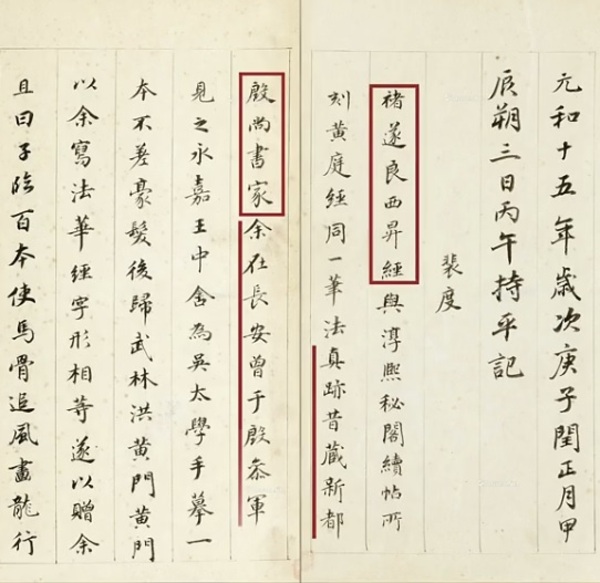 元和十五年歲次庚子閏正月甲
辰朔三日丙午持平記
裴度
褚遂良西昇經與淳熙秘閣續帖所
刻黃庭經同一筆法真跡昔藏新都
殷尚書家余在長安曾于殷叅軍
見之永嘉王中舍為吳太學手摹一
本不差豪髮後歸武林洪黃門黃門
以余寫法華經字形相等遂以贈余
且曰子臨百本使馬骨追風畫龍行